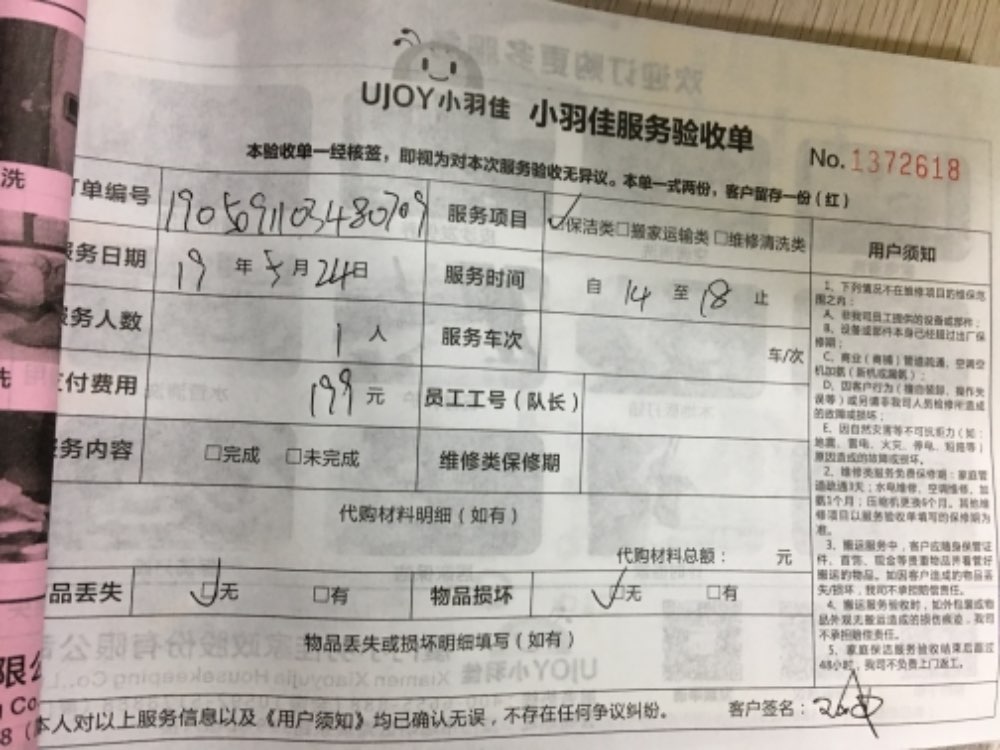 UJOY小羽佳 小羽佳服务验收单
No.1372618
本验收单一经核签，即视为对本次服务验收无异议。本单一式两份，客户留存一份（红）
单编号 服务项目 保洁类 搬家运输类 维修清洗类 用户须知
务日期 19 年 5 月 24 日 服务时间 自 14 至 18 止
务人数 1 人 服务车次 车/次
付费用 199 元 员工工号（队长）
务内容 完成 未完成 维修类保修期
代购材料明细（如有）
代购材料总额： 元
品丢失 无 有 物品损坏 无 有
物品丢失或损坏明细填写（如有）
本人对以上服务信息以及《用户须知》均已确认无误，不存在任何争议纠纷。 客户签名：
1、下列情况不在维修项目的维保范
围之内：
A、非我司员工提供的设备或部件；
B、设备或部件本身已经超过出厂保
修期；
C、商业（商铺）管道疏通，空调空
机加氨（新机或漏氨）；
D、因客户行为（撞击装卸、操作失
误等）或另请非我司人员检修所造成
的故障或损坏；
E、因自然灾害等不可抗拒力（如：
地震、雷电、火灾、停电、短路等）
原因造成的故障或损坏。
2、维修类服务免费保修期：家庭管
道疏通3天；水电维修、空调维修、加
氨1个月；压缩机更换6个月。其他维
修项目以服务验收单填写的保修期为
准。
3、搬运服务中，客户应随身保管证
件、首饰、现金等贵重物品并看管好
搬运的物品。如因客户造成的物品丢
失/损坏，我司不承担赔偿责任。
4、搬运服务验收时，如外包装或物
品外观无搬运造成的损伤痕迹，我司
不承担赔偿责任。
5、家庭保洁服务验收结束后超过
48小时，我司不负责上门返工。
洗